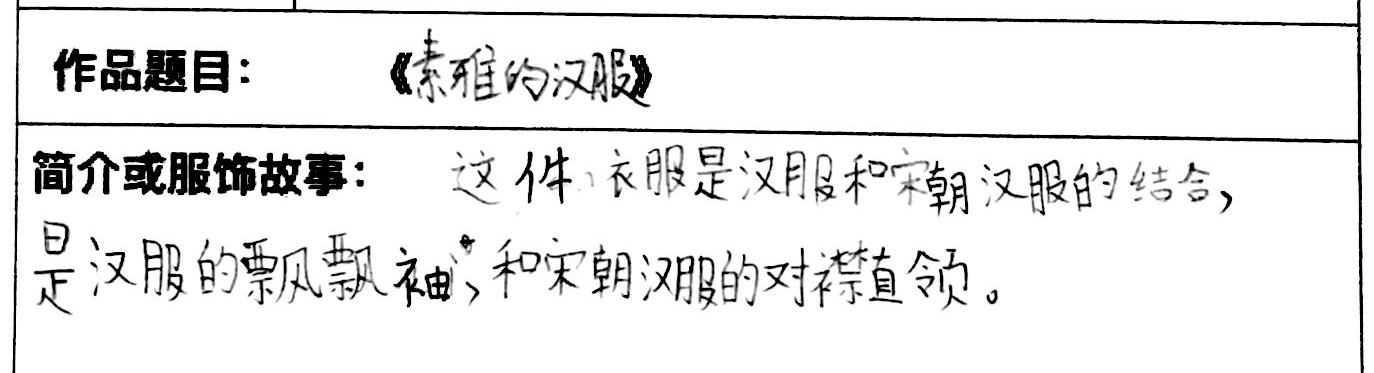 作品题目： 《素雅的汉服》
简介或服饰故事： 这件衣服是汉服和宋朝汉服的结合，
是汉服的飘飘袖，和宋朝汉服的对襟直领。